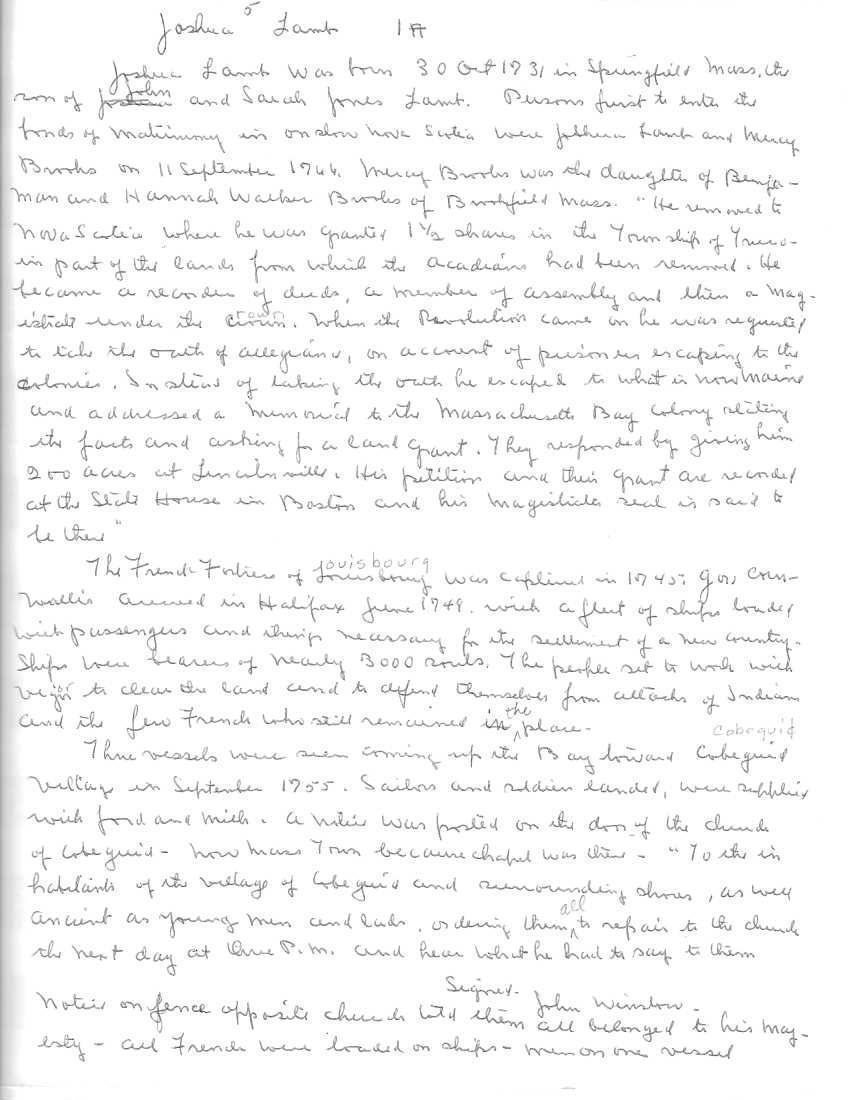 Joshua 5 Lamb 1A
Joshua Lamb was born 30 Oct 1731 in Springfield Mass, the
son of John and Sarah Jones Lamb. Persons first to enter the
bonds of matrimony in onslow Nova Scotia were Joshua Lamb and Mercy
Brooks on 11 September 1766. Mercy Brooks was the daughter of Benja-
man and Hannah Walker Brooks of Brookfield Mass. "He removed to
Nova Scotia where he was granted 1 1/2 shares in the Township of Truro -
in part of the lands from which the Acadians had been removed. He
became a recorder of deeds, a member of assembly and then a mag-
istrate under the crown. When the Revolution came on he was requested
to take the oath of allegiance, on account of prisoners escaping to the
colonies. Instead of taking the oath he escaped to what is now Maine
and addressed a memorial to the Massachusetts Bay Colony stating
the facts and asking for a land grant. They responded by giving him
200 acres at Lincolnville. His petition and their grant are recorded
at the State House in Boston and his magistrates seal is said to
be there"
The French Fortress of Louisbourg was captured in 1745; Gov, Corn-
wallis arrived in Halifax June 1749. with a fleet of ships loaded
with passengers and things necessary for the settlement of a new country.
Ships were bearers of nearly 3000 souls. The people set to work with
vigor to clear the land and to defend themselves from attacks of Indians
and the few French who still remained in the place -
Cobequid
Three vessels were seen coming up the Bay toward Cobequid
Village in September 1755. Sailors and soldiers landed, were supplied
with food and milk. A notice was posted on the door of the church
of Cobequid - now Mass Town because chapel was there - "To the in
habitants of the village of Cobequid and surrounding shores, as well
ancient as young men and lads, ordering them all to repair to the church
the next day at three P.M. and hear what he had to say to them
Signed - John Winslow -
Notice on fence opposite church told them all belonged to his maj-
esty - all French were loaded on ships - men on one vessel